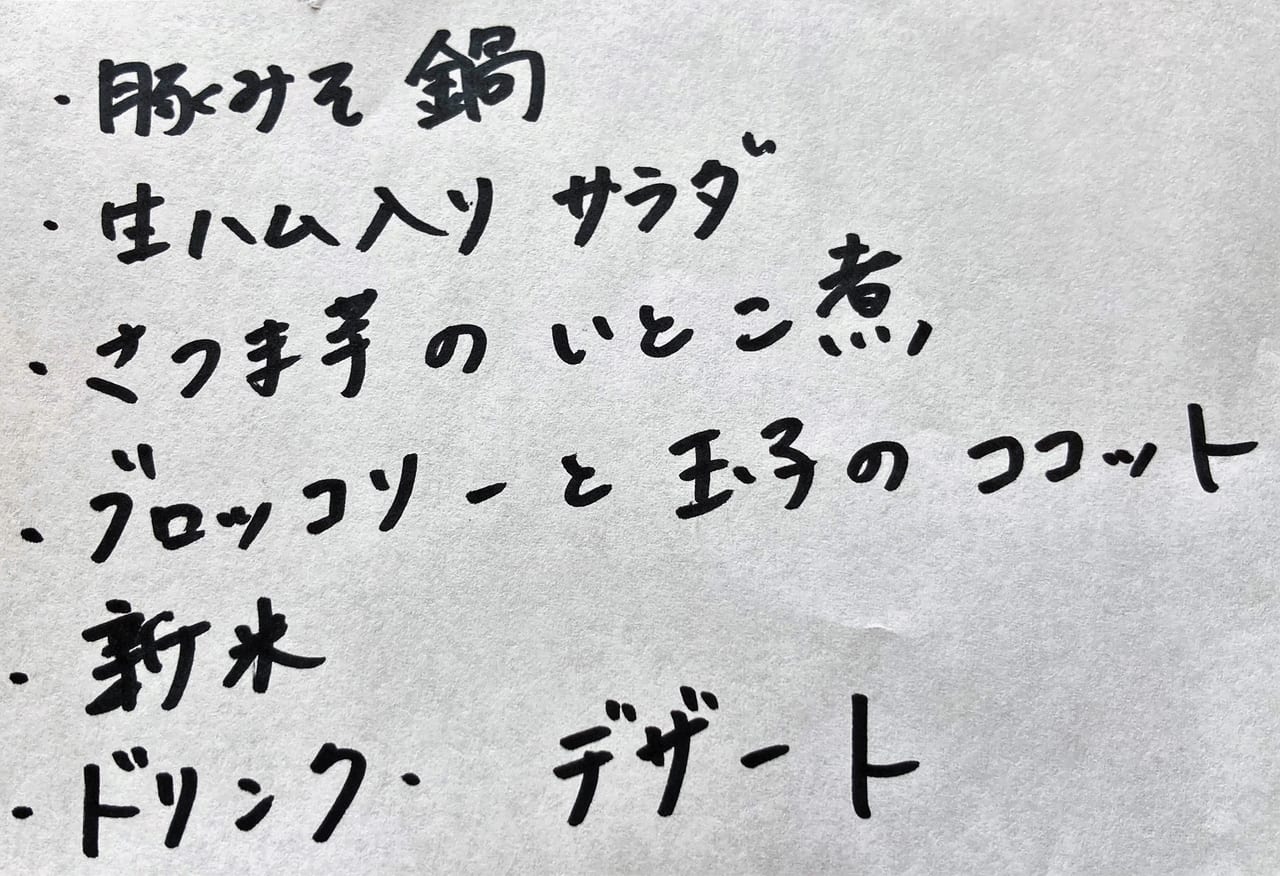 ・豚みそ鍋
・生ハム入りサラダ
・さつま芋のいとこ煮
・ブロッコリーと玉子のココット
・新米
・ドリンク・デザート